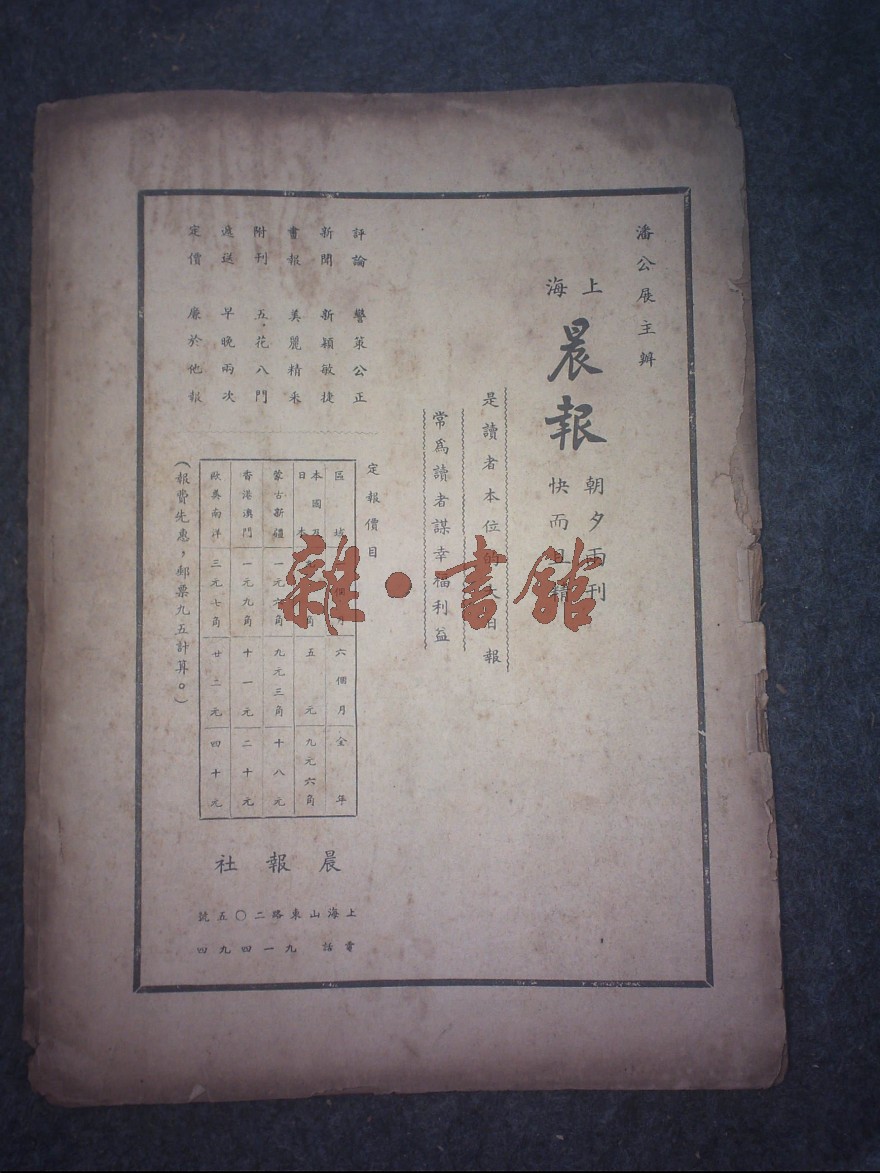 潘公展主辦
上海
晨報
朝夕兩刊
快而且精
是讀者本位的大日報
常爲讀者謀幸福利益
評論 警策公正
新聞 新穎敏捷
畫報 美麗精采
附刊 五花八門
遞送 早晚兩次
定價 廉於他報
定報價目
區域 個月 六個月 全年
本國及日本 角 五元 九元六角
蒙古新疆 一元六角 九元三角 十八元
香港澳門 一元九角 十一元 二十元
歐美南洋 三元七角 廿二元 四十元
(報費先惠,郵票九五計算。)
晨報社
上海山東路二〇五號
電話九一四九四
雜·書館